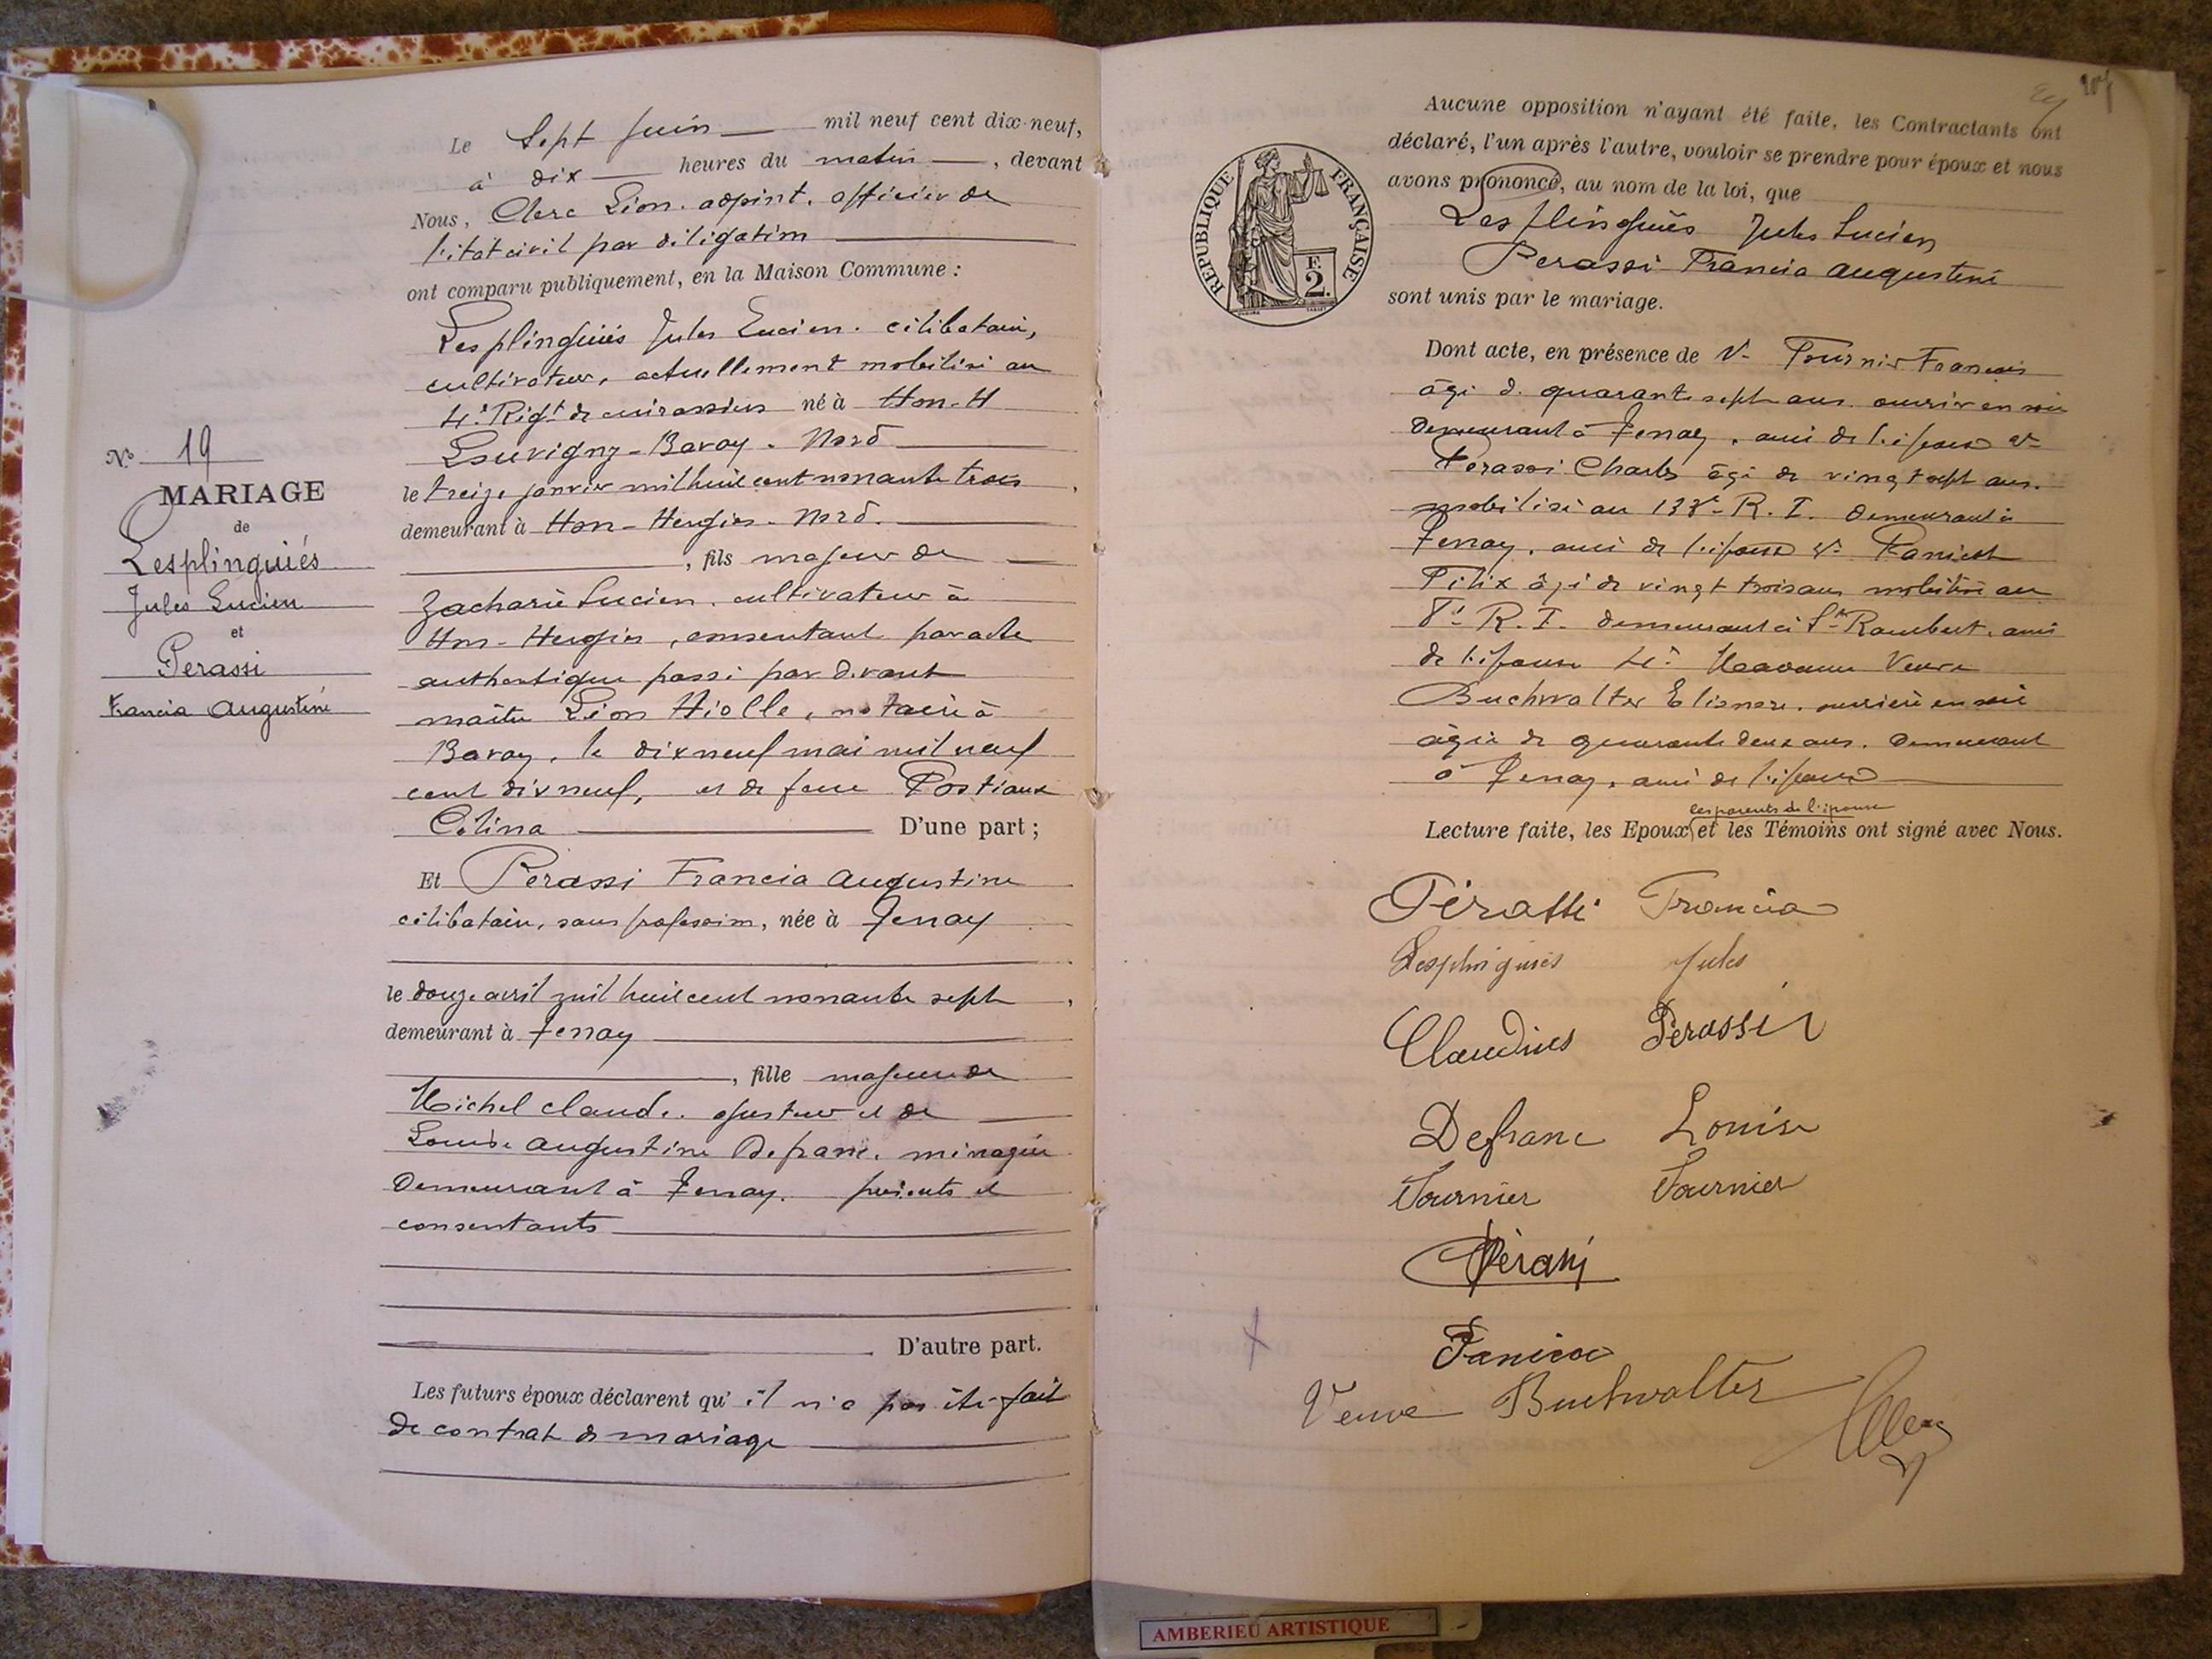 Le Sept juin mil neuf cent dix-neuf,
à dix heures du matin, devant
Nous, Clerc Léon, adjoint, officier de
l'état civil par délégation
ont comparu publiquement, en la Maison Commune :
Lesplinguiés Jules Lucien, célibataire,
cultivateur, actuellement mobilisé au
4e Régt de cuirassiers né à Hon-H
Louvigny-Bavay. Nord
le treize janvier mil huit cent nonante trois,
demeurant à Hon-Hergies. Nord.
, fils majeur de
Zacharie Lucien, cultivateur à
Hon-Hergies, consentant par acte
authentique passé par devant
maître Léon Hiolle, notaire à
Bavay, le dix neuf mai mil neuf
cent dix neuf, et de feue Postiaux
Célina D'une part ;
Et Perassi Francia Augustine
célibataire, sans profession, née à Tenay
le douze avril mil huit cent nonante sept,
demeurant à Tenay
, fille majeure de
Michel Claude, ajusteur et de
Louise Augustine Defranc, ménagère
demeurant à Tenay. présents et
consentants
D'autre part.
Les futurs époux déclarent qu'il n'a pas été fait
de contrat de mariage
No 19
MARIAGE
de
Lesplinguiés
Jules Lucien
et
Perassi
Francia Augustine
Aucune opposition n'ayant été faite, les Contractants ont
déclaré, l'un après l'autre, vouloir se prendre pour époux et nous
avons prononcé, au nom de la loi, que
Lesplinguiés Jules Lucien
Perassi Francia Augustine
sont unis par le mariage.
RÉPUBLIQUE FRANÇAISE
F.
2.
Dont acte, en présence de Fournier François
âgé de quarante sept ans ouvrier en soie
demeurant à Tenay, ami de l'épouse
Perassi Charles âgé de vingt sept ans.
mobilisé au 133e R. I. demeurant à
Tenay, ami de l'épouse
Félix âgé de vingt trois ans mobilisé au
R. I. demeurant à St Rambert, ami
de l'épouse Madame Veuve
Buchwalter Eléonore, ouvrière en soie
âgée de quarante deux ans. demeurant
à Tenay, amie de l'épouse
les parents de l'épouse
Lecture faite, les Epoux et les Témoins ont signé avec Nous.
Pérassi Francia
Lesplinguiés Jules
Claudius Pérassi
Defranc Louise
Fournier Fournier
Pérassi
Veuve Buchwalter
AMBERIEU ARTISTIQUE